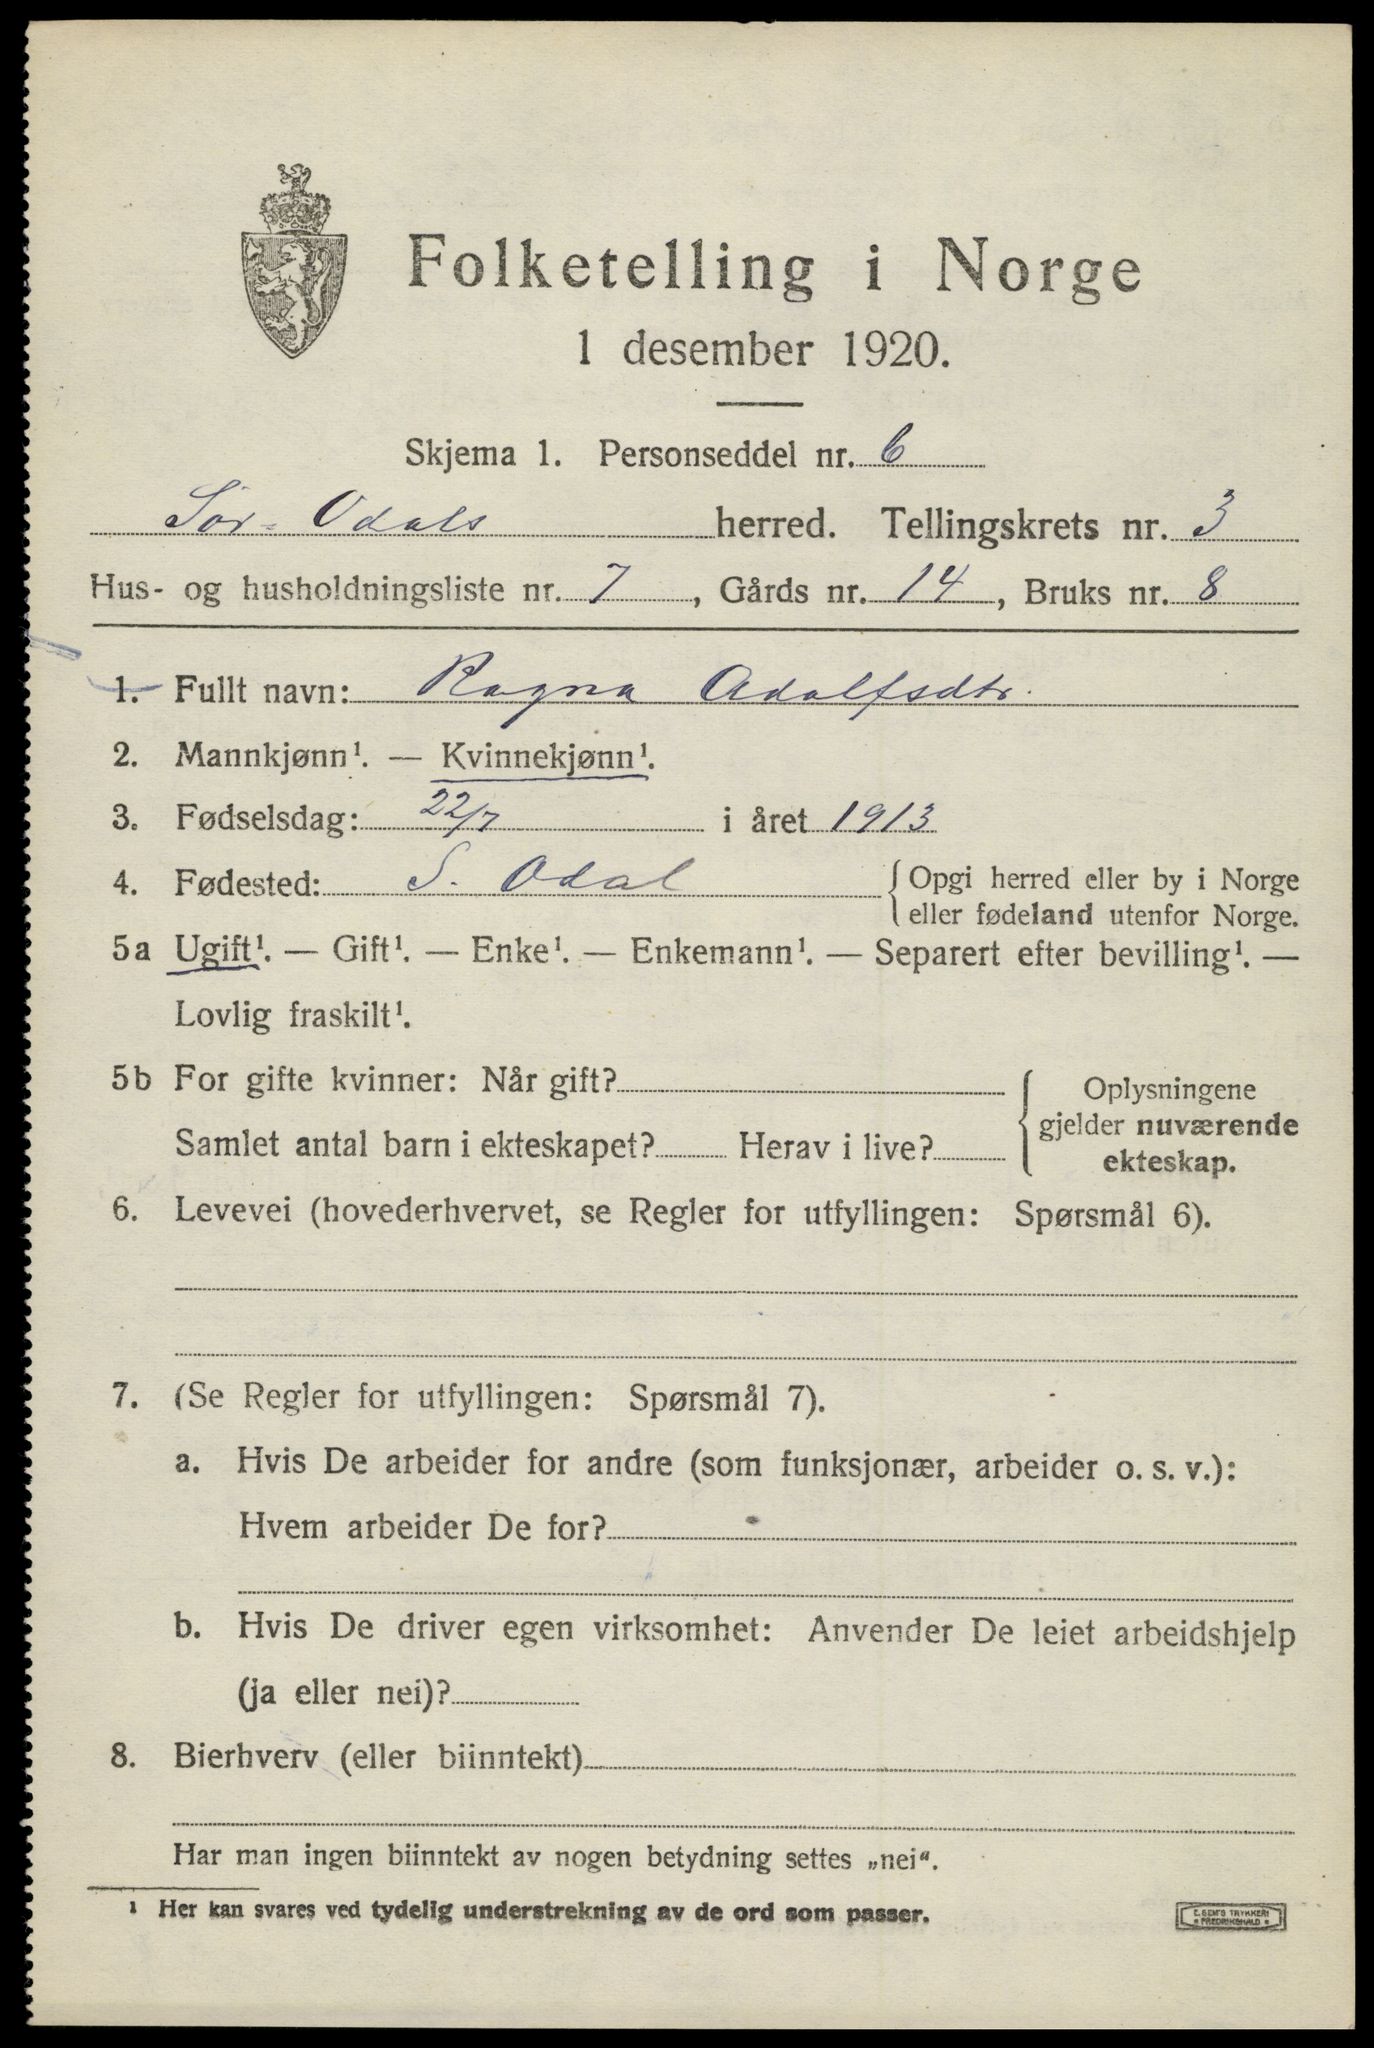 Folketelling i Norge
1 desember 1920.
Skjema 1. Personseddel nr. 6
Sør-Odals herred. Tellingskrets nr. 3
Hus- og husholdningsliste nr. 7, Gårds nr. 14, Bruks nr. 8
1. Fullt navn: Ragna Adolfsdtr.
2. Mannkjønn¹. — Kvinnekjønn¹.
3. Fødselsdag: 22/7 i året 1913
4. Fødested: S. Odal { Opgi herred eller by i Norge
eller fødeland utenfor Norge.
5a Ugift¹. — Gift¹. — Enke¹. — Enkemann¹. — Separert efter bevilling¹. —
Lovlig fraskilt¹.
5b For gifte kvinner: Når gift?
Samlet antal barn i ekteskapet? Herav i live?
{ Oplysningene
gjelder nuværende
ekteskap.
6. Levevei (hovederhvervet, se Regler for utfyllingen: Spørsmål 6).
7. (Se Regler for utfyllingen: Spørsmål 7).
a. Hvis De arbeider for andre (som funksjonær, arbeider o. s. v.):
Hvem arbeider De for?
b. Hvis De driver egen virksomhet: Anvender De leiet arbeidshjelp
(ja eller nei)?
8. Bierhverv (eller biinntekt)
Har man ingen biinntekt av nogen betydning settes „nei“.
¹ Her kan svares ved tydelig understrekning av de ord som passer.
E. SEM'S TRYKKERI
FREDRIKSHALD